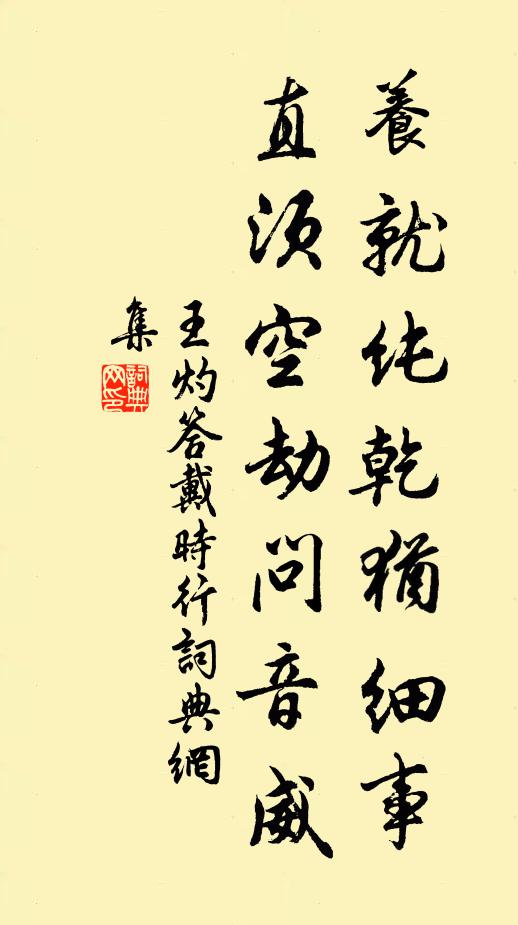 養就純乾猶細事
直須空劫問音威
王灼答戴時行詞典網
集
詞典
網印